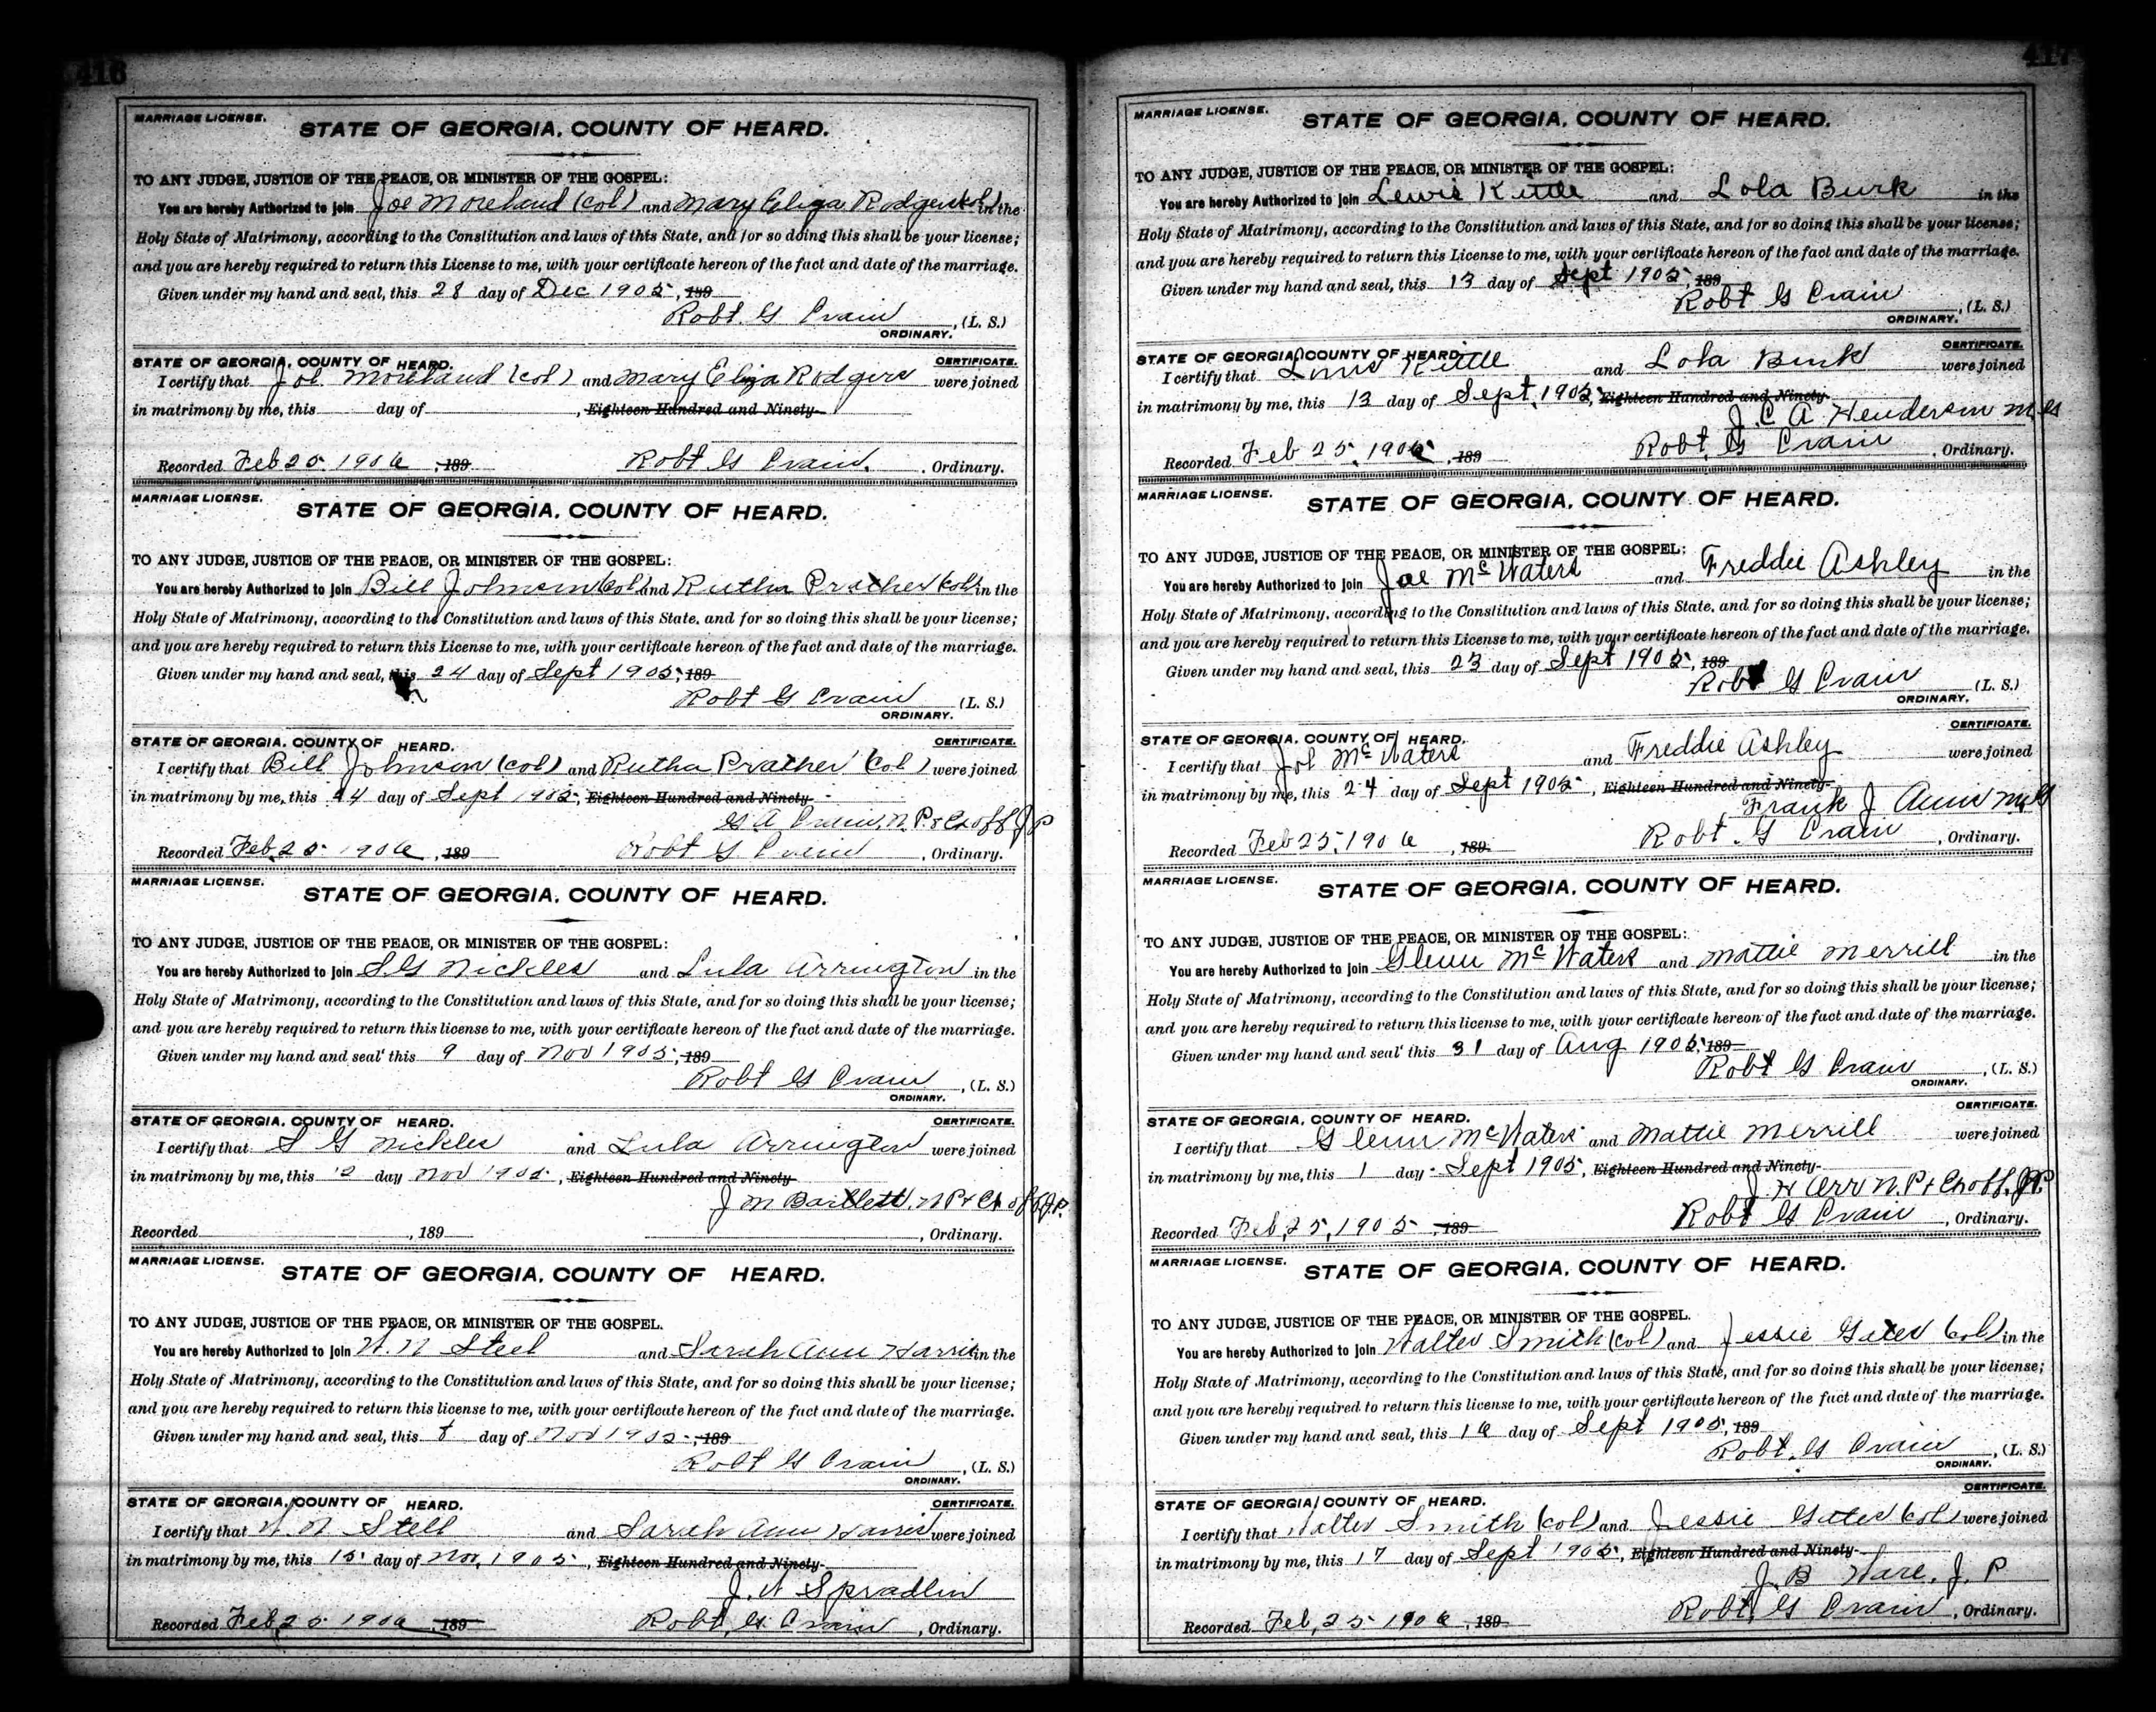 416
MARRIAGE LICENSE.
STATE OF GEORGIA, COUNTY OF HEARD.
TO ANY JUDGE, JUSTICE OF THE PEACE, OR MINISTER OF THE GOSPEL:
You are hereby Authorized to join Joe Moreland (col) and Mary Eliza Rodgers (col) in the
Holy State of Matrimony, according to the Constitution and laws of this State, and for so doing this shall be your license;
and you are hereby required to return this License to me, with your certificate hereon of the fact and date of the marriage.
Given under my hand and seal, this 28 day of Dec 1905, 189
Robt. G Crain, (L. S.)
ORDINARY.
STATE OF GEORGIA, COUNTY OF HEARD. CERTIFICATE.
I certify that Joe Moreland (col) and Mary Eliza Rodgers were joined
in matrimony by me, this day of , Eighteen Hundred and Ninety-
Recorded Feb 25, 1906, 189 Robt G Crain. Ordinary.
MARRIAGE LICENSE.
STATE OF GEORGIA, COUNTY OF HEARD.
TO ANY JUDGE, JUSTICE OF THE PEACE, OR MINISTER OF THE GOSPEL:
You are hereby Authorized to join Bill Johnson (col) and Rutha Prather (col) in the
Holy State of Matrimony, according to the Constitution and laws of this State, and for so doing this shall be your license;
and you are hereby required to return this License to me, with your certificate hereon of the fact and date of the marriage.
Given under my hand and seal, this 24 day of Sept 1905, 189
Robt G Crain (L. S.)
ORDINARY.
STATE OF GEORGIA, COUNTY OF HEARD. CERTIFICATE.
I certify that Bill Johnson (col) and Rutha Prather (col) were joined
in matrimony by me, this 24 day of Sept 1905, Eighteen Hundred and Ninety-
G A Crain, N. P. & Ex off J P
Recorded Feb, 25, 1906, 189 Robt G Crain, Ordinary.
MARRIAGE LICENSE.
STATE OF GEORGIA, COUNTY OF HEARD.
TO ANY JUDGE, JUSTICE OF THE PEACE, OR MINISTER OF THE GOSPEL:
You are hereby Authorized to join S G Nickles and Lula Arrington in the
Holy State of Matrimony, according to the Constitution and laws of this State, and for so doing this shall be your license;
and you are hereby required to return this license to me, with your certificate hereon of the fact and date of the marriage.
Given under my hand and seal this 9 day of Nov 1905, 189
Robt G Crain, (L. S.)
ORDINARY.
STATE OF GEORGIA, COUNTY OF HEARD. CERTIFICATE.
I certify that S G Nickles and Lula Arrington were joined
in matrimony by me, this 12 day Nov 1905, Eighteen Hundred and Ninety
J M Bartlett, N P & Ex off J.P.
Recorded , 189 , Ordinary.
MARRIAGE LICENSE.
STATE OF GEORGIA, COUNTY OF HEARD.
TO ANY JUDGE, JUSTICE OF THE PEACE, OR MINISTER OF THE GOSPEL.
You are hereby Authorized to join W. N Steel and Sarah Ann Harris in the
Holy State of Matrimony, according to the Constitution and laws of this State, and for so doing this shall be your license;
and you are hereby required to return this license to me, with your certificate hereon of the fact and date of the marriage.
Given under my hand and seal, this 8 day of Nov 1905, 189
Robt G Crain, (L. S.)
ORDINARY.
STATE OF GEORGIA, COUNTY OF HEARD. CERTIFICATE.
I certify that W. N Stell and Sarah Ann Harris were joined
in matrimony by me, this 15 day of Nov, 1905, Eighteen Hundred and Ninety-
J. W Spradlin
Recorded Feb, 25 1906, 189 Robt, G. Crain, Ordinary.
417
MARRIAGE LICENSE.
STATE OF GEORGIA, COUNTY OF HEARD.
TO ANY JUDGE, JUSTICE OF THE PEACE, OR MINISTER OF THE GOSPEL:
You are hereby Authorized to join Lewis Kittle and Lola Burk in the
Holy State of Matrimony, according to the Constitution and laws of this State, and for so doing this shall be your license;
and you are hereby required to return this License to me, with your certificate hereon of the fact and date of the marriage.
Given under my hand and seal, this 13 day of Sept 1905, 189
Robt G Crain, (L. S.)
ORDINARY.
STATE OF GEORGIA, COUNTY OF HEARD. CERTIFICATE.
I certify that Lewis Kittle and Lola Burk were joined
in matrimony by me, this 13 day of Sept, 1905, Eighteen Hundred and Ninety-
J. C A Henderson M. G
Recorded Feb 25, 1906, 189 Robt, G Crain, Ordinary.
MARRIAGE LICENSE.
STATE OF GEORGIA, COUNTY OF HEARD.
TO ANY JUDGE, JUSTICE OF THE PEACE, OR MINISTER OF THE GOSPEL:
You are hereby Authorized to join Joe McWaters and Freddie Ashley in the
Holy State of Matrimony, according to the Constitution and laws of this State, and for so doing this shall be your license;
and you are hereby required to return this License to me, with your certificate hereon of the fact and date of the marriage.
Given under my hand and seal, this 23 day of Sept 1905, 189
Robt G Crain (L. S.)
ORDINARY.
STATE OF GEORGIA, COUNTY OF HEARD. CERTIFICATE.
I certify that Joe McWaters and Freddie Ashley were joined
in matrimony by me, this 24 day of Sept 1905, Eighteen Hundred and Ninety-
Frank J Amis M. G
Recorded Feb 25, 1906, 189. Robt. G Crain, Ordinary.
MARRIAGE LICENSE.
STATE OF GEORGIA, COUNTY OF HEARD.
TO ANY JUDGE, JUSTICE OF THE PEACE, OR MINISTER OF THE GOSPEL:
You are hereby Authorized to join Glenn McWaters and Mattie Merrill in the
Holy State of Matrimony, according to the Constitution and laws of this State, and for so doing this shall be your license;
and you are hereby required to return this license to me, with your certificate hereon of the fact and date of the marriage.
Given under my hand and seal this 31 day of Aug 1905, 189
Robt G Crain, (L. S.)
ORDINARY.
STATE OF GEORGIA, COUNTY OF HEARD. CERTIFICATE.
I certify that Glenn McWaters and Mattie Merrill were joined
in matrimony by me, this 1 day Sept 1905, Eighteen Hundred and Ninety-
J H Orr N. P & Ex off. J.P.
Recorded Feb, 25, 1905, 189 Robt G Crain, Ordinary.
MARRIAGE LICENSE.
STATE OF GEORGIA, COUNTY OF HEARD.
TO ANY JUDGE, JUSTICE OF THE PEACE, OR MINISTER OF THE GOSPEL.
You are hereby Authorized to join Walter Smith (col) and Jessie Gates (col) in the
Holy State of Matrimony, according to the Constitution and laws of this State, and for so doing this shall be your license;
and you are hereby required to return this license to me, with your certificate hereon of the fact and date of the marriage.
Given under my hand and seal, this 16 day of Sept 1905, 189
Robt. G Crain, (L. S.)
ORDINARY.
STATE OF GEORGIA, COUNTY OF HEARD. CERTIFICATE.
I certify that Walter Smith (col) and Jessie Gates (col) were joined
in matrimony by me, this 17 day of Sept 1905, Eighteen Hundred and Ninety-
J. B Hare, J. P
Recorded Feb, 25 1906, 189 Robt, G Crain, Ordinary.